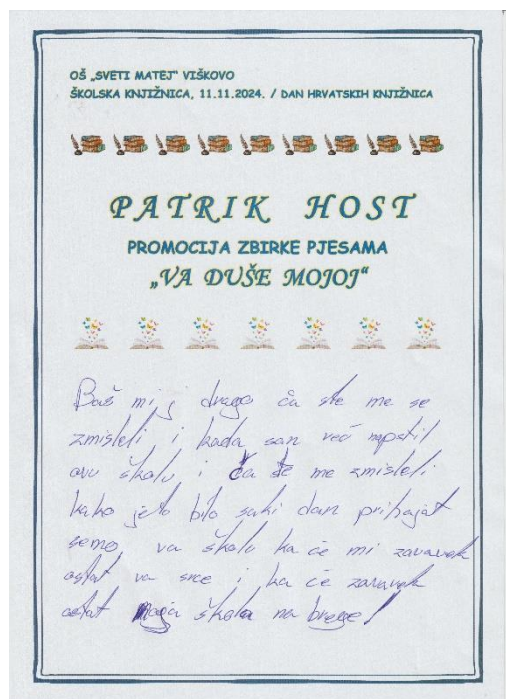 OŠ „SVETI MATEJ“ VIŠKOVO
ŠKOLSKA KNJIŽNICA, 11.11.2024. / DAN HRVATSKIH KNJIŽNICA
PATRIK HOST
PROMOCIJA ZBIRKE PJESAMA
„VA DUŠE MOJOJ“
Baš mi j drago ča ste me se
zmisleli i kada san već napstil
ovu školu i ča ste me zmisleli
kako je to bilo saki dan prihajat
semo, va školu ka će mi zavavek
ostat va srce i ka će zavavek
ostat moja škola na brege!